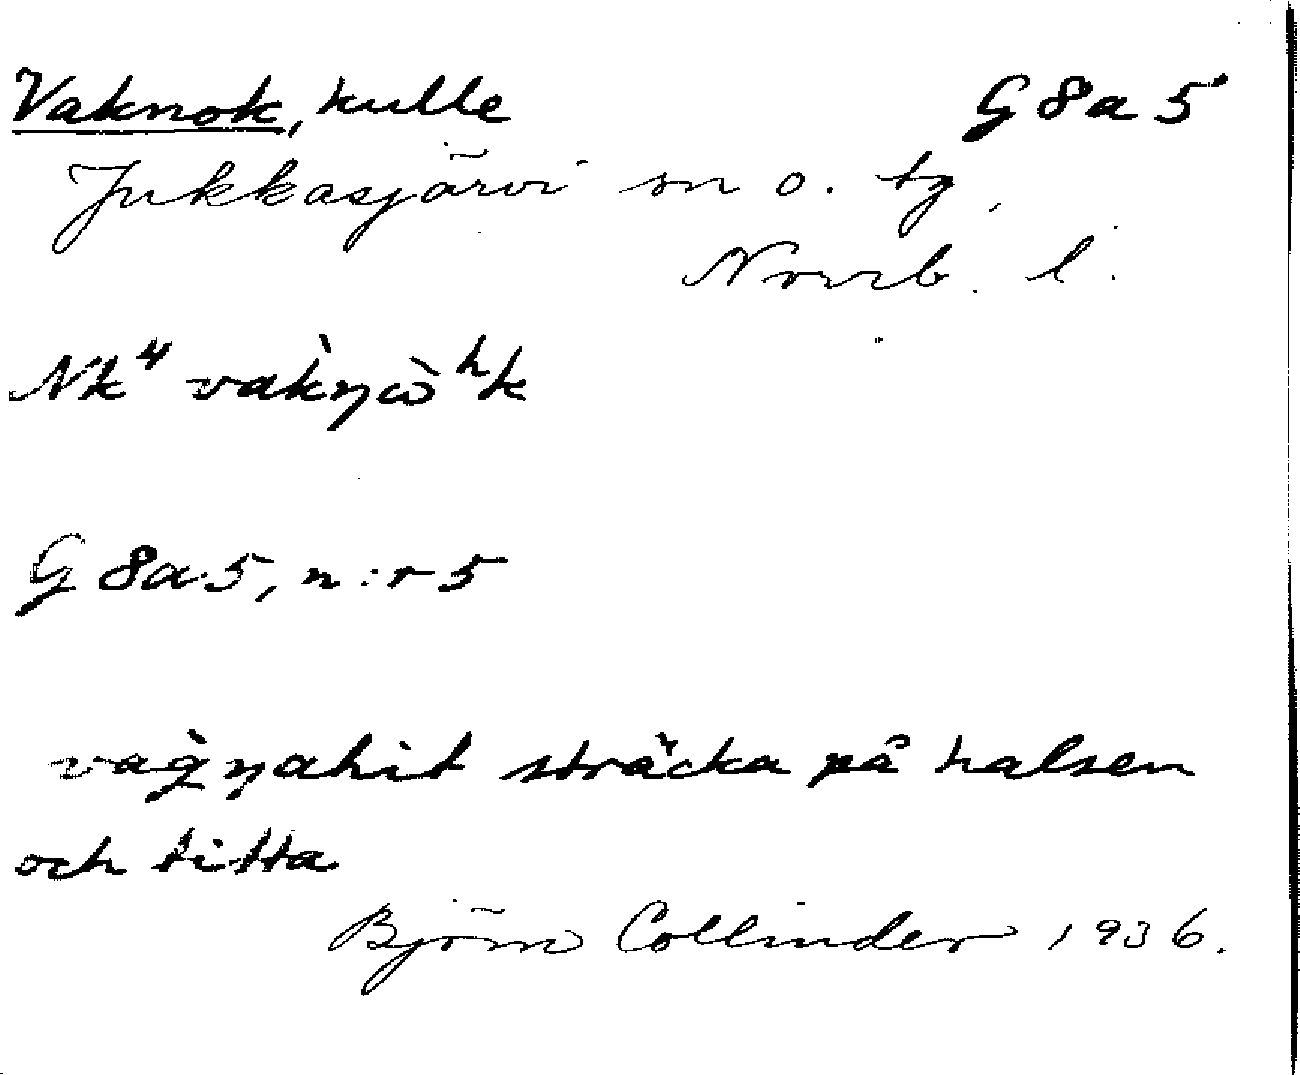 Vaknok, kulle G 8 a 5
Jukkasjärvi sn o. tg,
Norrb. l.
Nk⁴ vak̀ŋὼʰk
G 8a5, n:r 5
vag̀ŋahit sträcka på halsen
och titta
Björn Collinder 1936.